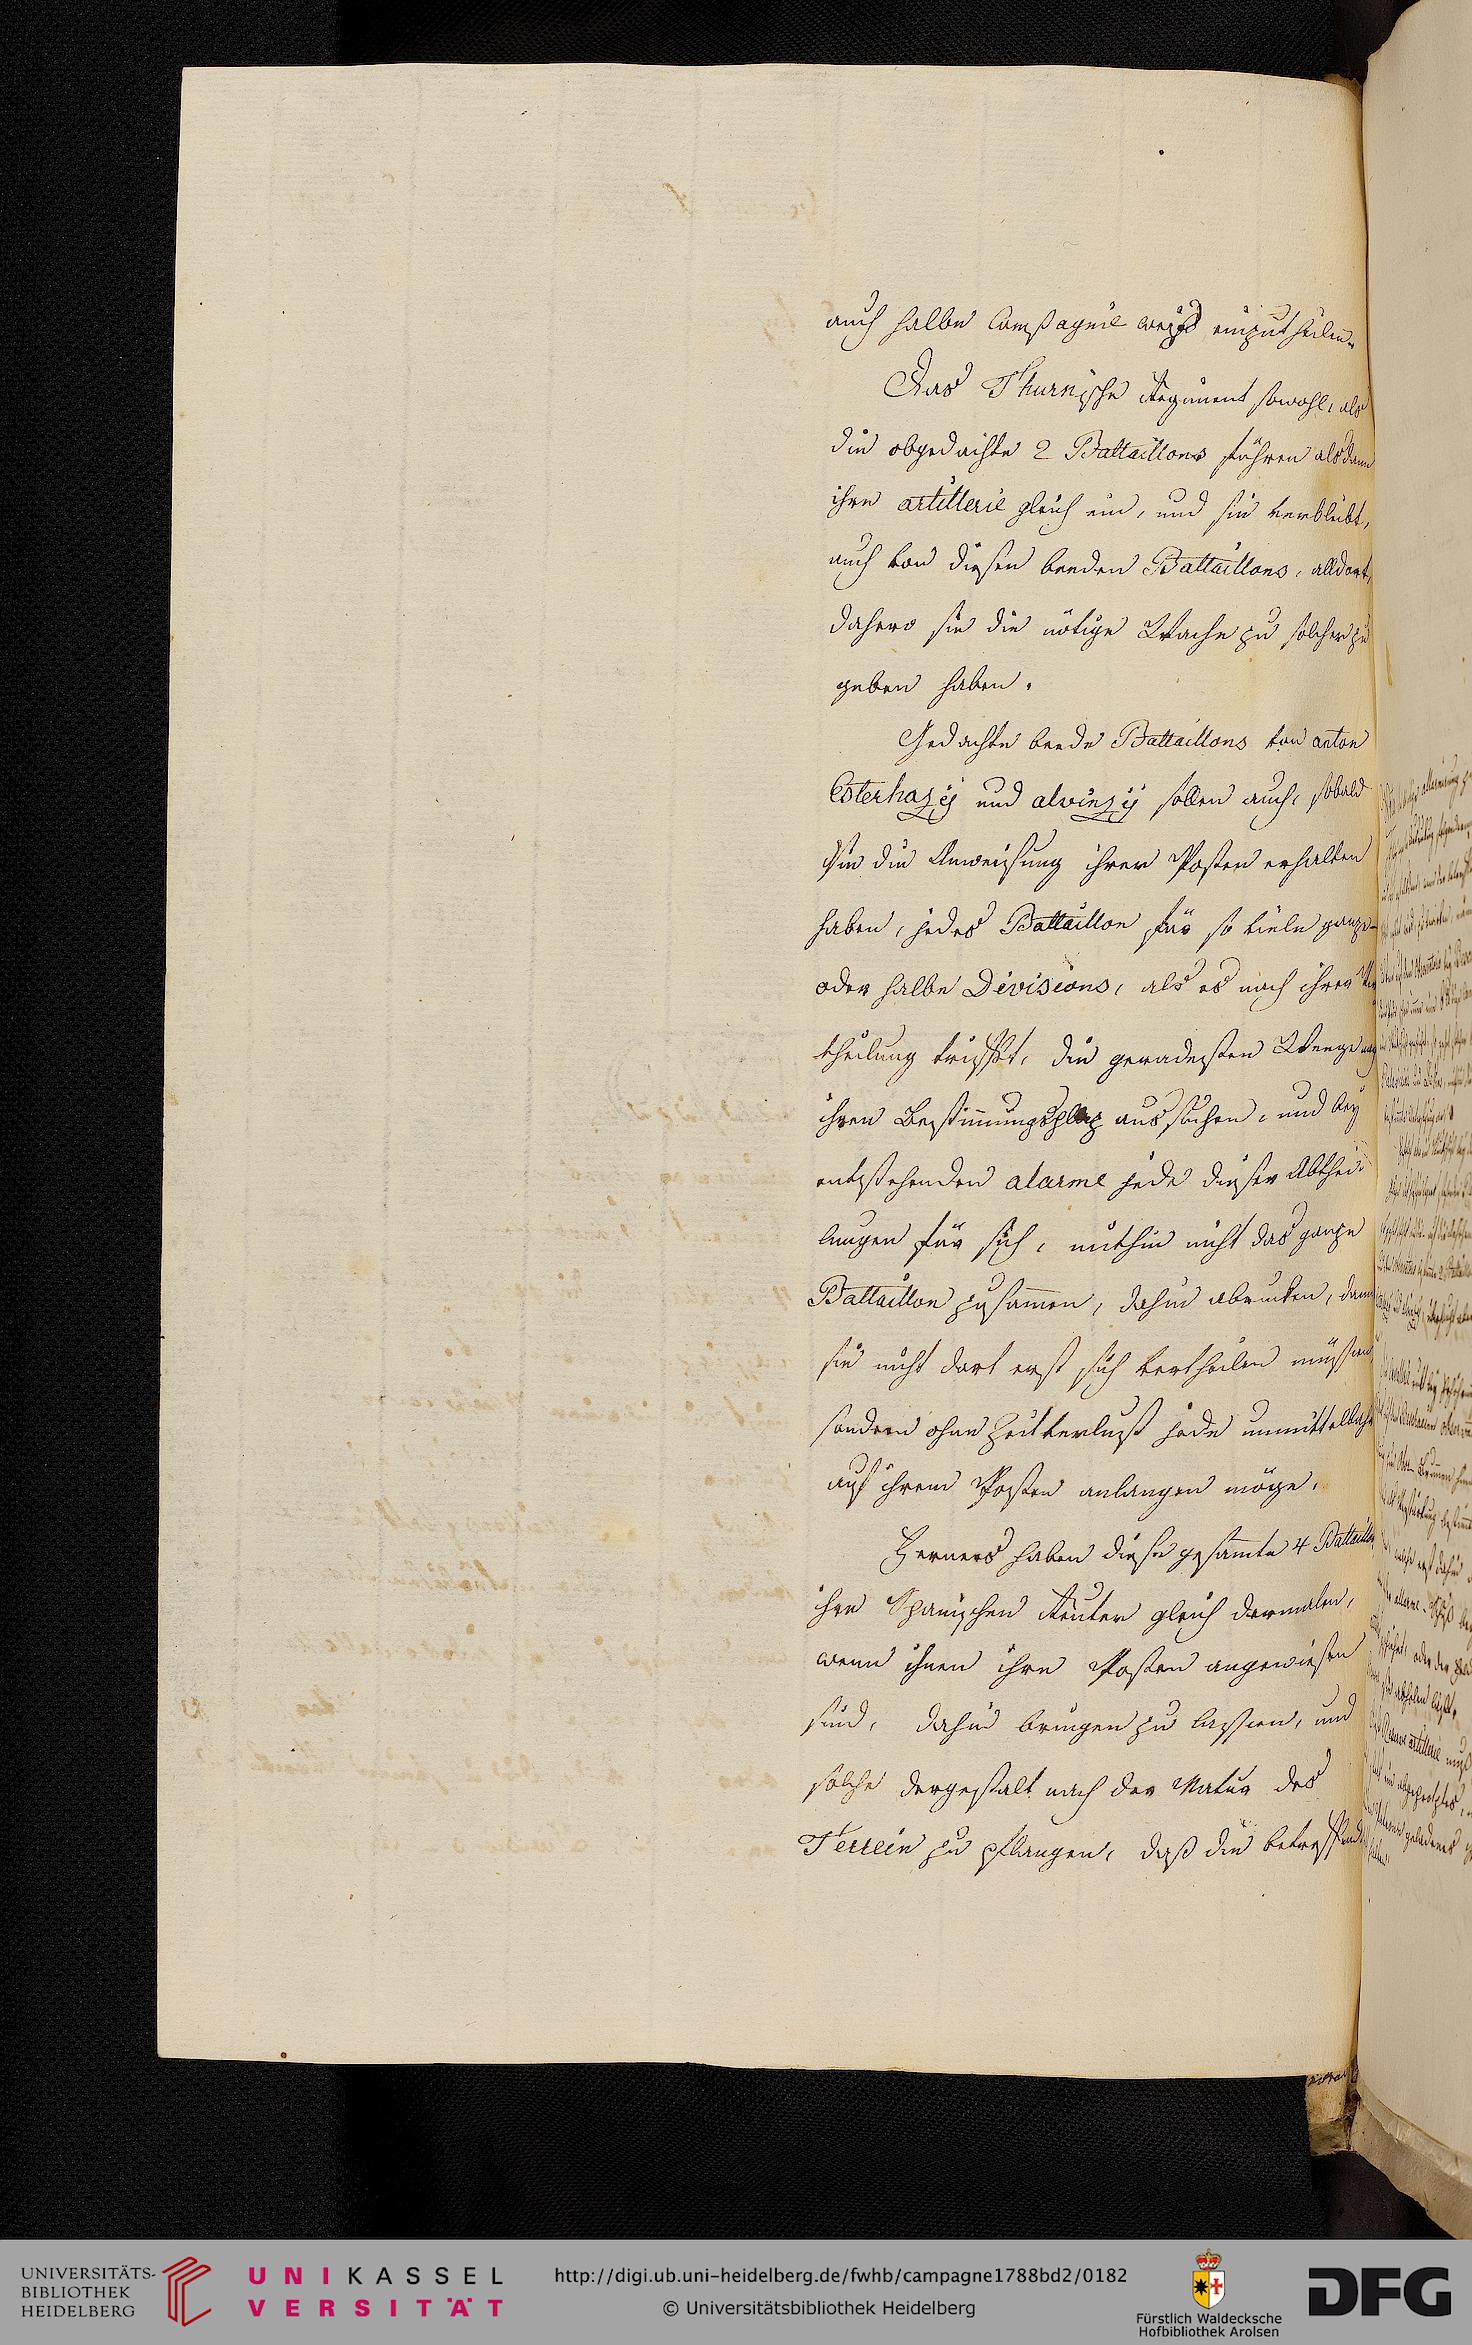 auch halbe Compagnie weiß einzutheilen.
Das Thurnische Regiment sowohl, als
die obgedachte 2 Battaillons führen alsdann
ihre artillerie gleich ein, und sie verbleibt,
auch von diesen beeden Battaillons, alldort,
dahero sie die nötige Wache zu solcher zu
geben haben.
Gedachte beede Battaillons von anton
Esterhazÿ und alvinzÿ sollen auch, sobald
sie die Anweisung ihrer Posten erhalten
haben, jedes Battaillon für so viele ganze
oder halbe Divisions, als es nach ihrer Ver
theilung trifft, die geradesten Weege nach
ihren Bestimmungsplaz aussuchen, und bey
entstehenden alarme jede dieser Abthei-
lungen für sich, mithin nicht das ganze
Battaillon zusammen, dahin abrucken, damit
sie nicht dort erst sich vertheilen müssen,
sondern ohne Zeitverlust jede unmittelbahr
auf ihrem Posten anlangen möge.
Ferners haben diese gesamte 4 Battaillons
ihre Spanischen Reuter gleich dermalen,
wenn ihnen ihre Posten angewiesen
sind, dahin bringen zu lassen, und
solche dergestalt nach der Natur des
Terrein zu pflanzen, daß die betreffende
UNIVERSITÄTS-
BIBLIOTHEK
HEIDELBERG
UNIKASSEL
VERSITÄT
http://digi.ub.uni-heidelberg.de/fwhb/campagne1788bd2/0182
© Universitätsbibliothek Heidelberg
Fürstlich Waldecksche
Hofbibliothek Arolsen
DFG